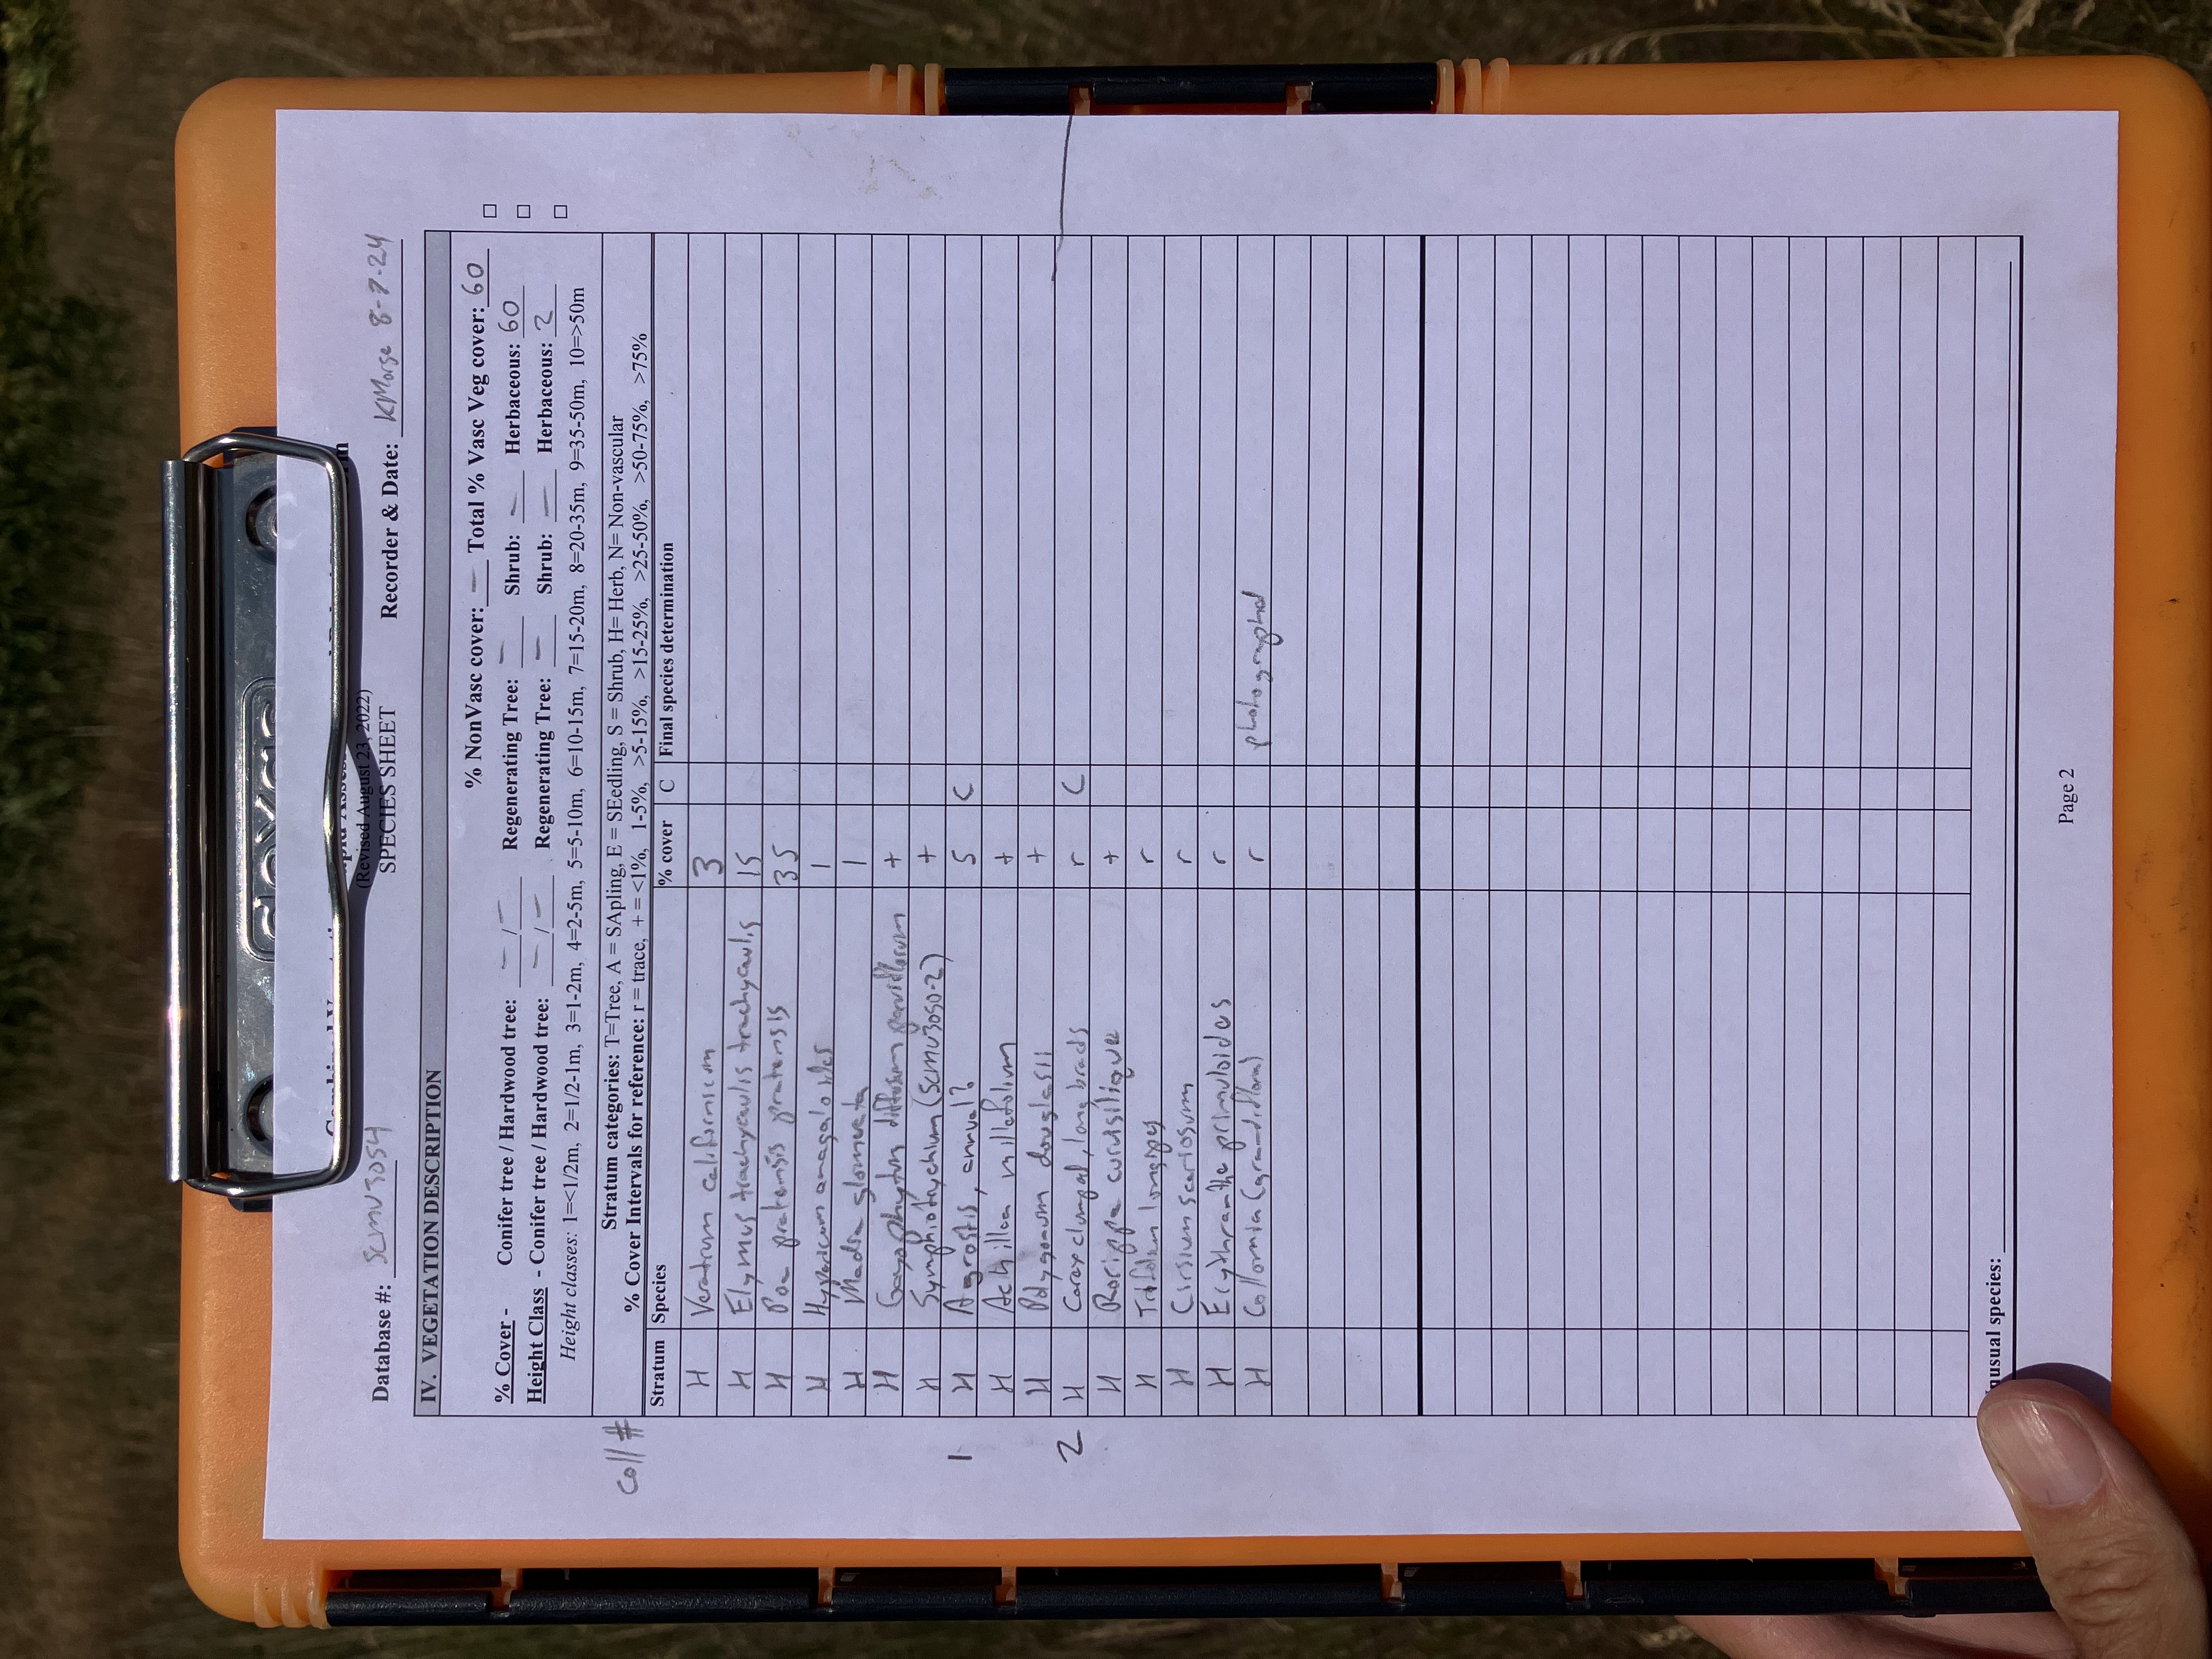 (Revised August 23, 2022)
SPECIES SHEET
Database #: SCMV3054 Recorder & Date: KMorse 8-7-24
IV. VEGETATION DESCRIPTION
% NonVasc cover: — Total % Vasc Veg cover: 60 □
% Cover - Conifer tree / Hardwood tree: — / — Regenerating Tree: — Shrub: — Herbaceous: 60 □
Height Class - Conifer tree / Hardwood tree: — / — Regenerating Tree: — Shrub: — Herbaceous: 2 □
Height classes: 1=<1/2m, 2=1/2-1m, 3=1-2m, 4=2-5m, 5=5-10m, 6=10-15m, 7=15-20m, 8=20-35m, 9=35-50m, 10=>50m
Stratum categories: T=Tree, A = SApling, E = SEedling, S = Shrub, H= Herb, N= Non-vascular
% Cover Intervals for reference: r = trace, + = <1%, 1-5%, >5-15%, >15-25%, >25-50%, >50-75%, >75%
coll #
Stratum Species % cover C Final species determination
H Veratrum californicum 3
H Elymus trachycaulis trachycaulis 15
H Poa pratensis pratensis 35
H Hypericum anagaloides 1
H Madia glomerata 1
H Gayophytum diffusum parviflorum +
H Symphiotrychium (SCMV3050-2) +
1 H Agrostis, annual? 5 C
H Achillea millefolium +
H Polygonum douglasii +
2 H Carex clumped, long bracts r C
H Rorippa curvisiliqua +
H Trifolium longipes r
H Cirsium scariosum r
H Erythranthe primuloides r
H Collomia (grandiflora) r photographed
Page 2